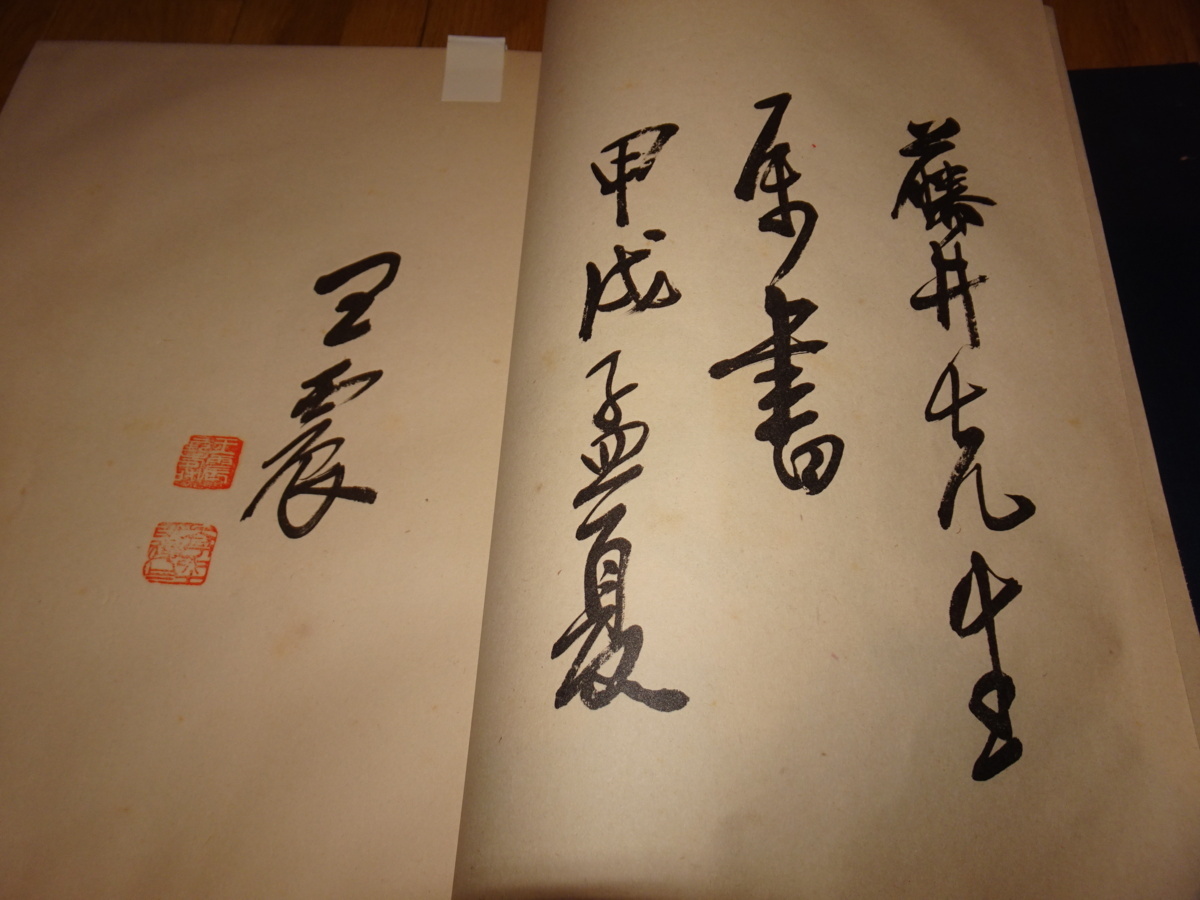 藤井先生
属書
甲戌孟夏
王震